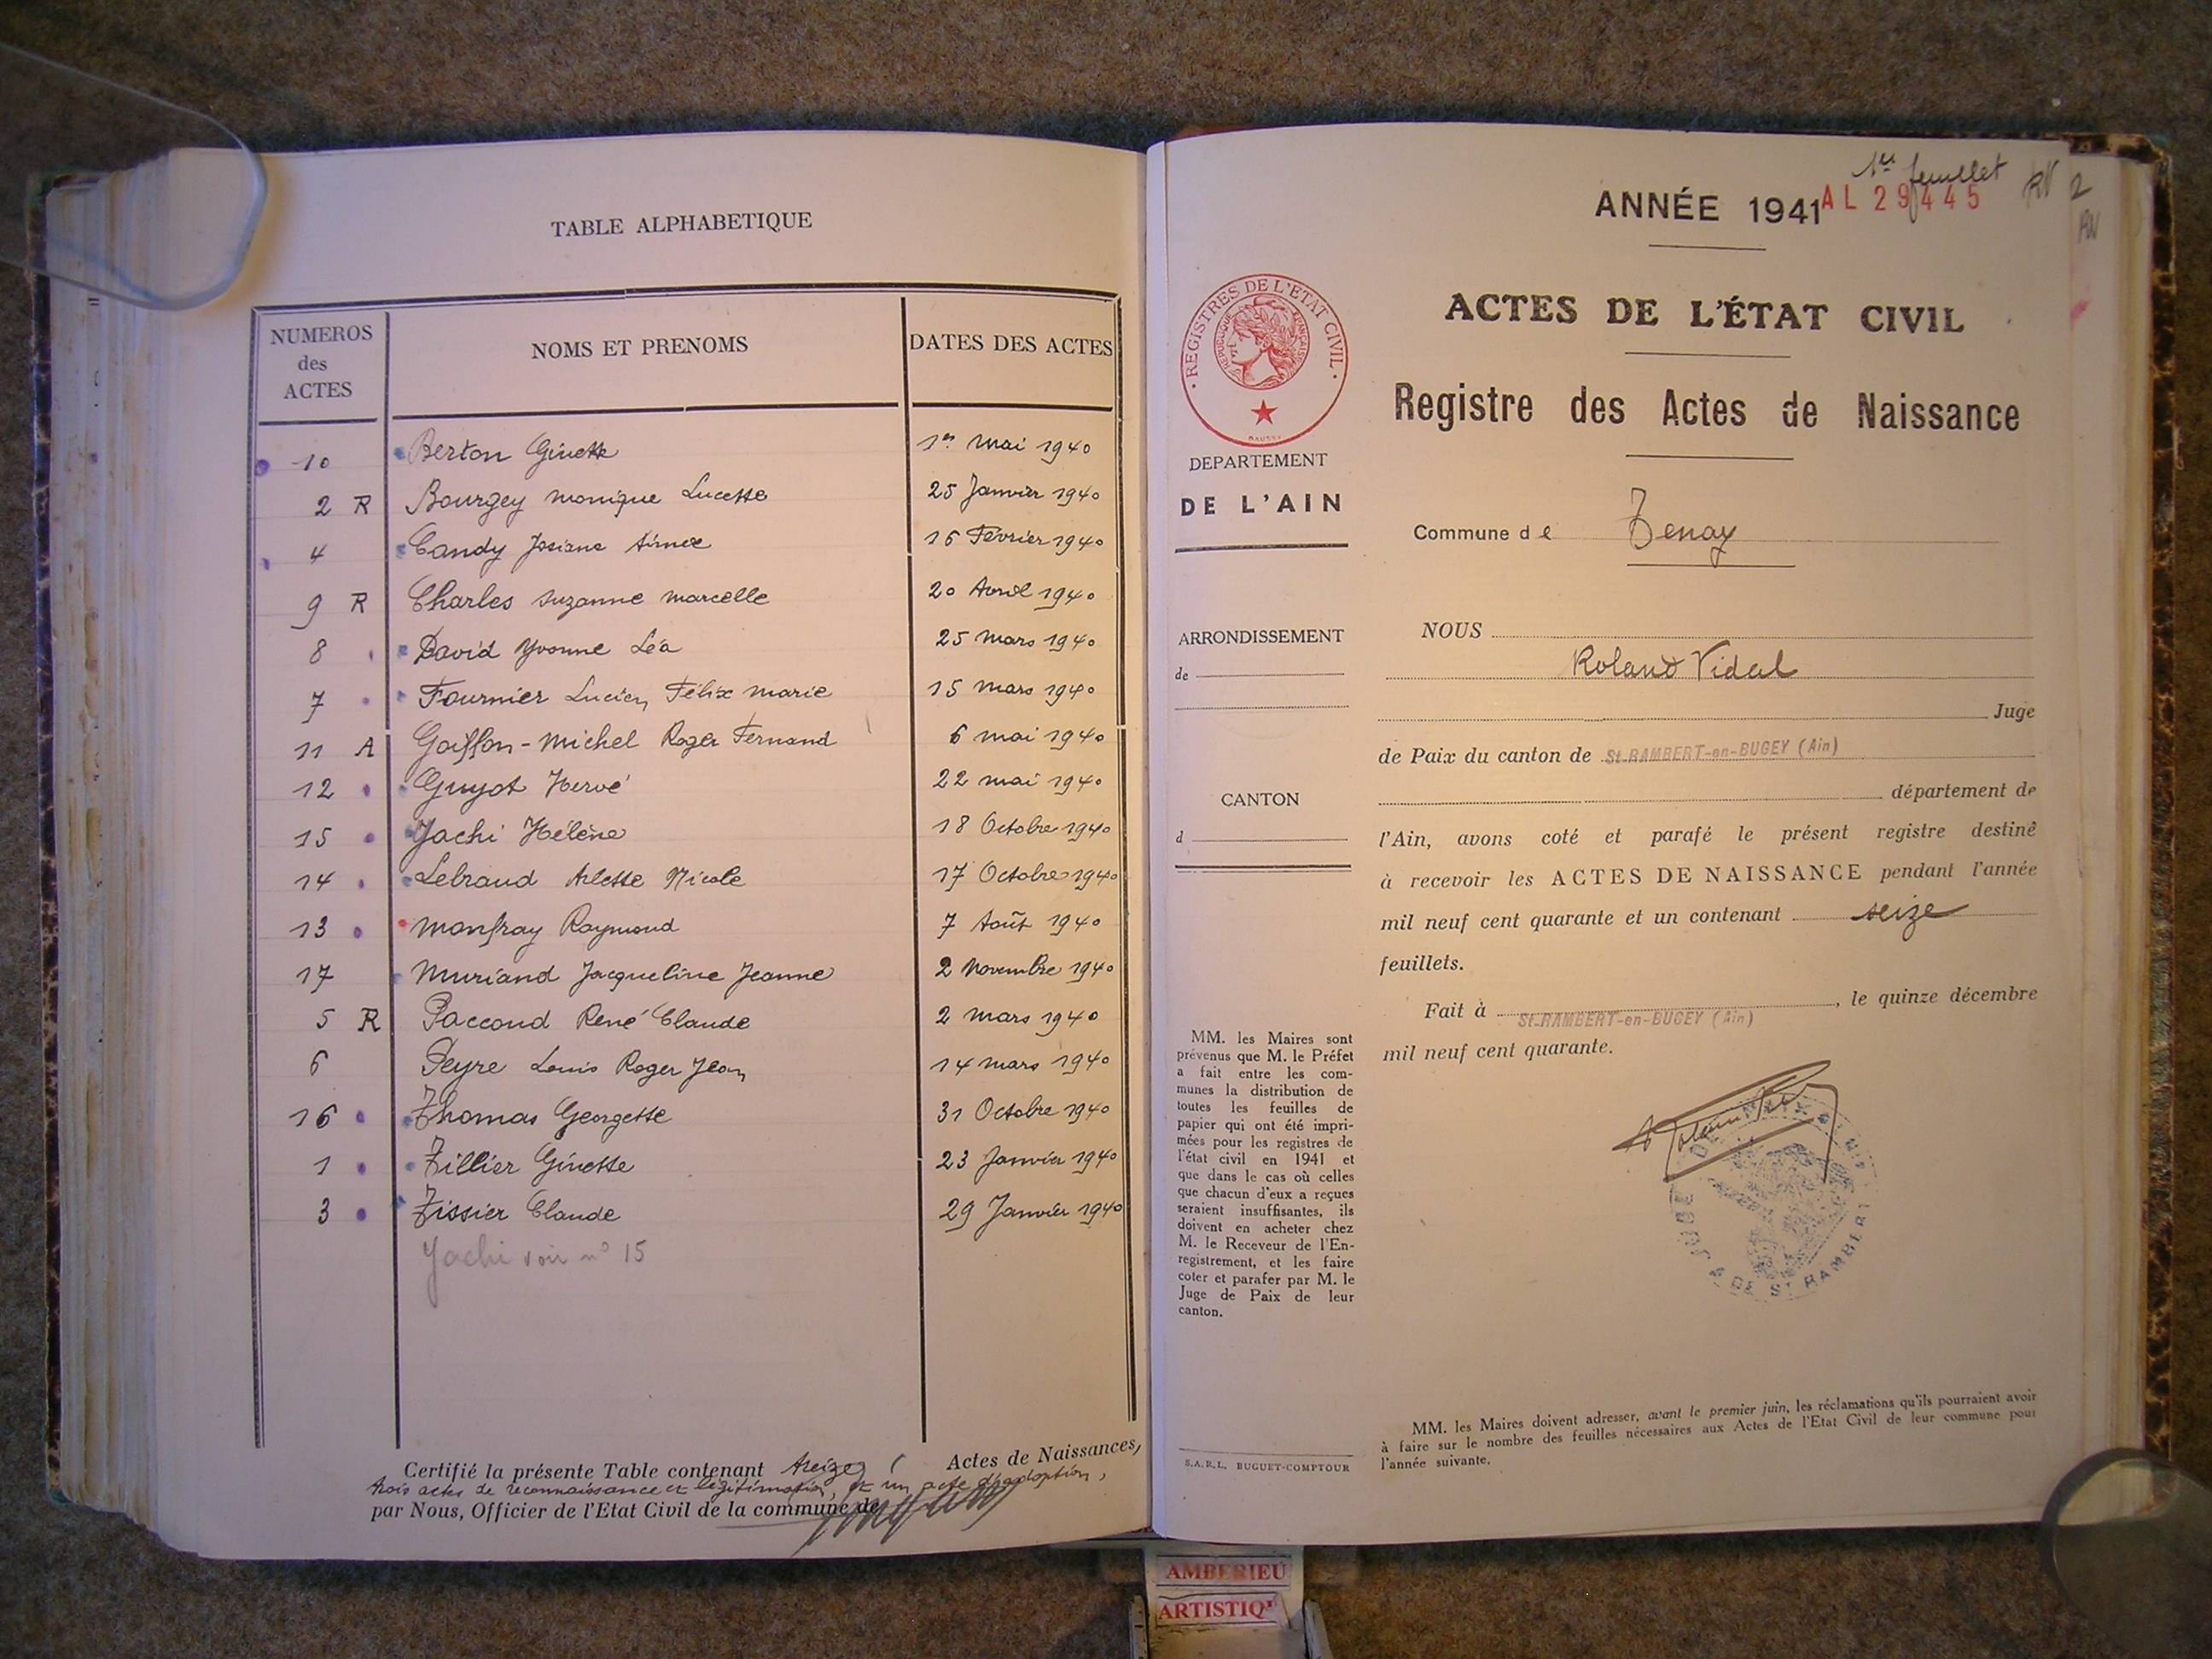 TABLE ALPHABETIQUE
NUMEROS des ACTES NOMS ET PRENOMS DATES DES ACTES
10 Berton Ginette 1er mai 1940
2 R Bourgey Monique Lucette 25 Janvier 1940
4 Candy Josiane Aimée 16 Février 1940
9 R Charles Suzanne Marcelle 20 Avril 1940
8 David Yvonne Léa 25 mars 1940
7 Fournier Lucien Félix Marie 15 mars 1940
11 A Goiffon-Michel Roger Fernand 6 mai 1940
12 Guyot Hervé 22 mai 1940
15 Jachi Hélène 18 Octobre 1940
14 Lebraud Arlette Nicole 17 Octobre 1940
13 Monfray Raymond 7 Août 1940
17 Muriand Jacqueline Jeanne 2 Novembre 1940
5 R Paccoud René Claude 2 mars 1940
6 Peyre Louis Roger Jean 14 mars 1940
16 Thomas Georgette 31 Octobre 1940
1 Tillier Ginette 23 Janvier 1940
3 Tissier Claude 29 Janvier 1940
Yachi voir n° 15
Certifié la présente Table contenant treize Actes de Naissances,
trois actes de reconnaissance et légitimation, et un acte d'adoption,
par Nous, Officier de l'Etat Civil de la commune de
1er feuillet
ANNÉE 1941 AL 29445
2
ACTES DE L'ÉTAT CIVIL
Registre des Actes de Naissance
REGISTRES DE L'ETAT CIVIL
REPUBLIQUE FRANÇAISE
DEPARTEMENT
DE L'AIN
Commune de Tenay
ARRONDISSEMENT
de
CANTON
d
NOUS
Roland Vidal
Juge
de Paix du canton de St.RAMBERT-en-BUGEY (Ain)
département de
l'Ain, avons coté et parafé le présent registre destiné
à recevoir les ACTES DE NAISSANCE pendant l'année
mil neuf cent quarante et un contenant seize
feuillets.
Fait à St.RAMBERT-en-BUGEY (Ain), le quinze décembre
mil neuf cent quarante.
MM. les Maires sont
prévenus que M. le Préfet
a fait entre les com-
munes la distribution de
toutes les feuilles de
papier qui ont été impri-
mées pour les registres de
l'état civil en 1941 et
que dans le cas où celles
que chacun d'eux a reçues
seraient insuffisantes, ils
doivent en acheter chez
M. le Receveur de l'En-
registrement, et les faire
coter et parafer par M. le
Juge de Paix de leur
canton.
DE ST RAMBERT
MM. les Maires doivent adresser, avant le premier juin, les réclamations qu'ils pourraient avoir
à faire sur le nombre des feuilles nécessaires aux Actes de l'Etat Civil de leur commune pour
l'année suivante.
S.A.R.L. BUGUET-COMPTOUR
AMBERIEU
ARTISTIQ